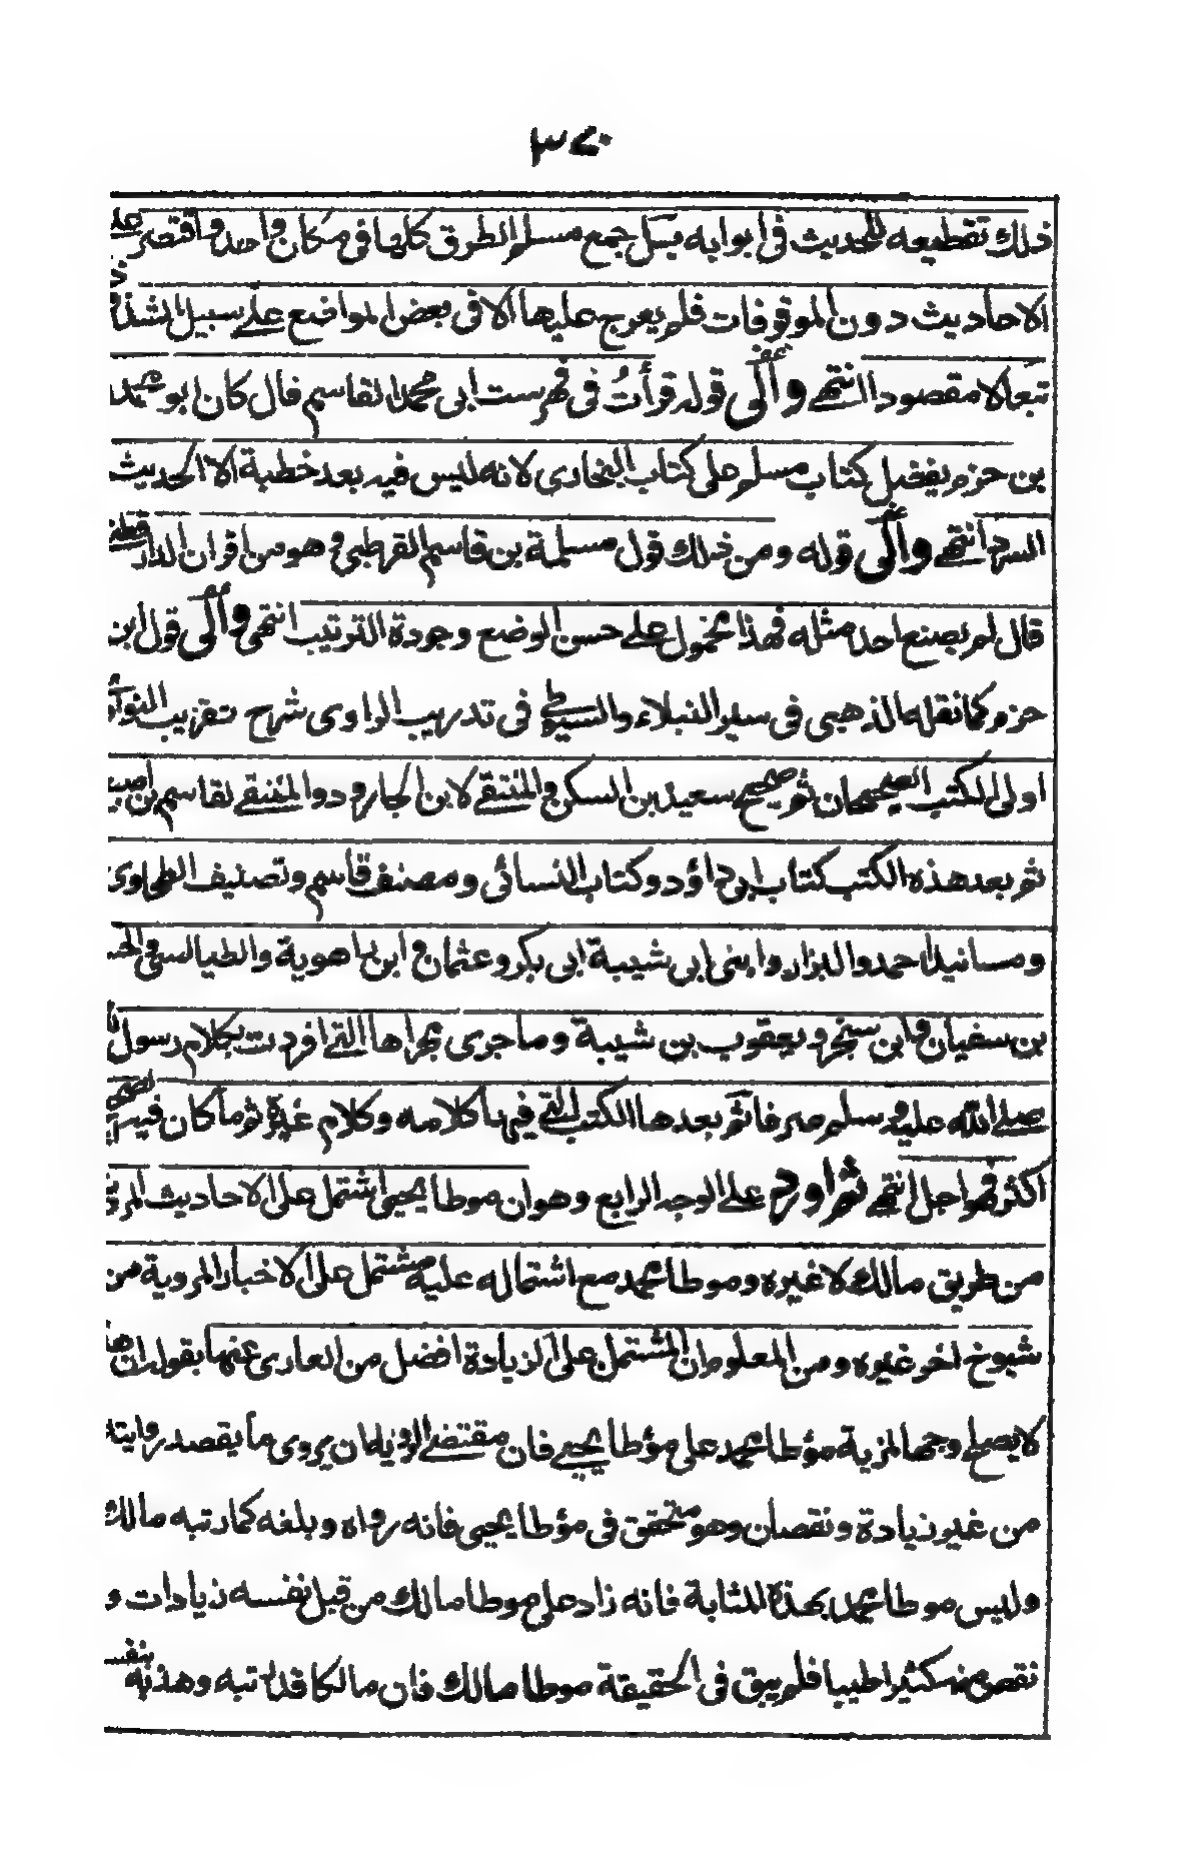 ٣٤٠
ذلك تقطيعه للحديث فى ابوابه بل جمع مسلم الطرق كلها فى مكان واحد واقتصر على
الاحاديث دون الموقوفات فلم يعرج عليها الا فى بعض المواضع على سبيل الشذوذ
تبعا لا مقصودا انتهى والى قوله قرأت فى فهرست ابى محمد القاسم قال كان ابو محمد
بن حزم يفضل كتاب مسلم على كتاب البخارى لانه ليس فيه بعد خطبة الا الحديث
السرد انتهى والى قوله ومن ذلك قول مسلمة بن قاسم القرطبى وهو من اقران الدارقطنى
قال لم يصنع احد مثله فهذا محمول على حسن الوضع وجودة الترتيب انتهى والى قول ابن
حزم كما نقله الذهبى فى سير النبلاء والسيوطى فى تدريب الراوى شرح تقريب النواوى
اولى الكتب الصحيحان ثم صحيح سعيد بن السكن والمنتقى لابن الجارود والمنتقى لقاسم بن اصبغ
ثم بعد هذه الكتب كتاب ابى داؤد وكتاب النسائى ومصنف قاسم وتصنيف الطحاوى
ومسانيد احمد والبزار وابنى ابى شيبة ابى بكر وعثمان وابن راهوية والطيالسى والحسن
بن سفيان وابن سنجر ويعقوب بن شيبة وما جرى مجراها التى افردت بكلام رسول الله
صلى الله عليه وسلم صرفا ثم بعدها الكتب التى فيها كلامه وكلام غيره ثم ما كان فيه الصحيح
اكثر فهو اجل انتهى ثم اورد على الوجه الرابع وهو ان موطا يحيى اشتمل على الاحاديث المروية
من طريق مالك لا غيره وموطا محمد مع اشتماله عليه مشتمل على الاخبار المروية من
شيوخ اخر غيره ومن المعلوم ان المشتمل على الزيادة افضل من العارى عنها بقوله ان هذا
لا يصلح وجها لمزية مؤطا محمد على مؤطا يحيى فان مقتضى الرواية ان يروى ما يقصد روايته
من غير زيادة ونقصان وهو متحقق فى مؤطا يحيى فانه رواه وبلغه كما رتبه مالك
وليس موطا محمد بهذه المثابة فانه زاد على موطا مالك من قبل نفسه زيادات و
نقص منه كثيرا طيبا فلم يبق فى الحقيقة موطا مالك فان مالكا قد رتبه وهذبه بنفسه